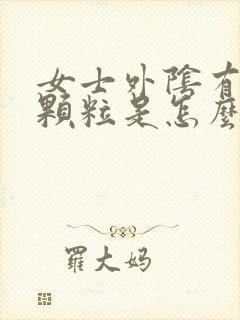 女士外陰有
顆粒是怎麼
羅大妈